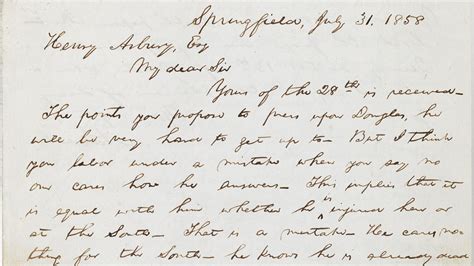 Springfield, July 31. 1858
Henry Asbury, Esq
My dear Sir
Yours of the 28th is received–
The points you propose to press upon Douglas, he
will be very hard to get up to– But I think
you labor under a mistake when you say no
one cares how he answers– This implies that it
is equal with him whether he is injured here or
at the South– That is a mistake– He cares no-
thing for the South– he knows he is already dead